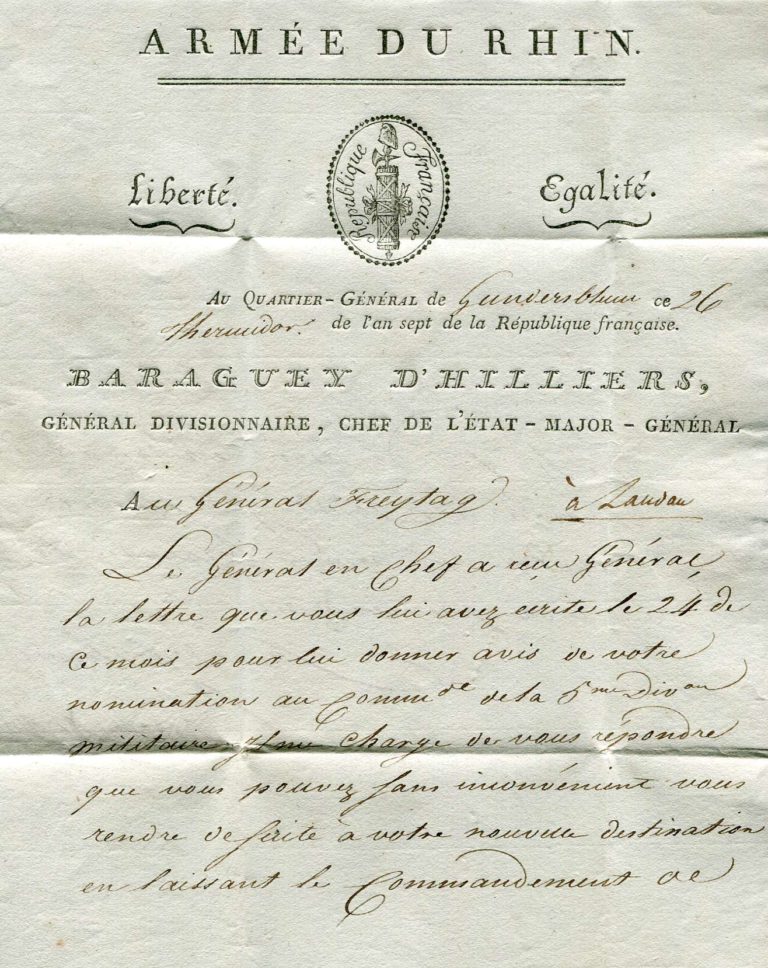 ARMÉE DU RHIN.
Liberté.
République Française
Egalité.
AU QUARTIER-GÉNÉRAL de Gundersblum ce 26
thermidor. de l'an sept de la République française.
BARAGUEY D'HILLIERS,
GÉNÉRAL DIVISIONNAIRE, CHEF DE L'ÉTAT-MAJOR-GÉNÉRAL
Au Général Freytag. à Landau
Le Général en Chef a reçu Général,
la lettre que vous lui avez écrite le 24 de
ce mois pour lui donner avis de votre
nomination au Commde de la 5me Divon
militaire, il me charge de vous répondre
que vous pouvez sans inconvénient vous
rendre de suite à votre nouvelle destination
en laissant le Commandement de